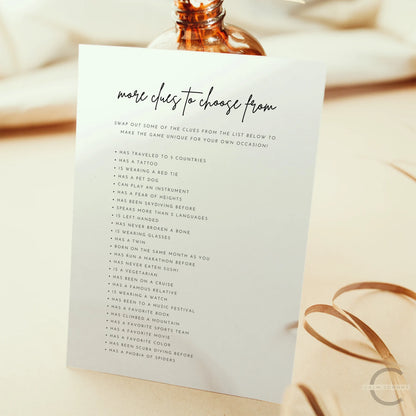 more clues to choose from
SWAP OUT SOME OF THE CLUES FROM THE LIST BELOW TO
MAKE THE GAME UNIQUE FOR YOUR OWN OCCASION!
• HAS TRAVELED TO 5 COUNTRIES
• HAS A TATTOO
• IS WEARING A RED TIE
• HAS A PET DOG
• CAN PLAY AN INSTRUMENT
• HAS A FEAR OF HEIGHTS
• HAS BEEN SKYDIVING BEFORE
• SPEAKS MORE THAN 3 LANGUAGES
• IS LEFT HANDED
• HAS NEVER BROKEN A BONE
• IS WEARING GLASSES
• HAS A TWIN
• BORN ON THE SAME MONTH AS YOU
• HAS RUN A MARATHON BEFORE
• HAS NEVER EATEN SUSHI
• IS A VEGETARIAN
• HAS BEEN ON A CRUISE
• HAS A FAMOUS RELATIVE
• IS WEARING A WATCH
• HAS BEEN TO A MUSIC FESTIVAL
• HAS A FAVORITE BOOK
• HAS CLIMBED A MOUNTAIN
• HAS A FAVORITE SPORTS TEAM
• HAS A FAVORITE MOVIE
• HAS A FAVORITE COLOR
• HAS BEEN SCUBA DIVING BEFORE
• HAS A PHOBIA OF SPIDERS
C